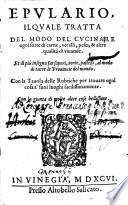 EPVLARIO,
ILQVALE TRATTA
DEL MODO DEL CVCINARE
ogni sorte di carne, vccelli, pesci, & altre
qualità di viuande.
Et di più insegna far sapori, torte, pastelli, al modo
di tutte le Prouincie del mondo.
Con la Tauola delle Rubriche per trouare ogni
cosa a' suoi luoghi facilissimamente.
IN VINEGIA, M D XCVI.
Presso Altobello Salicato.